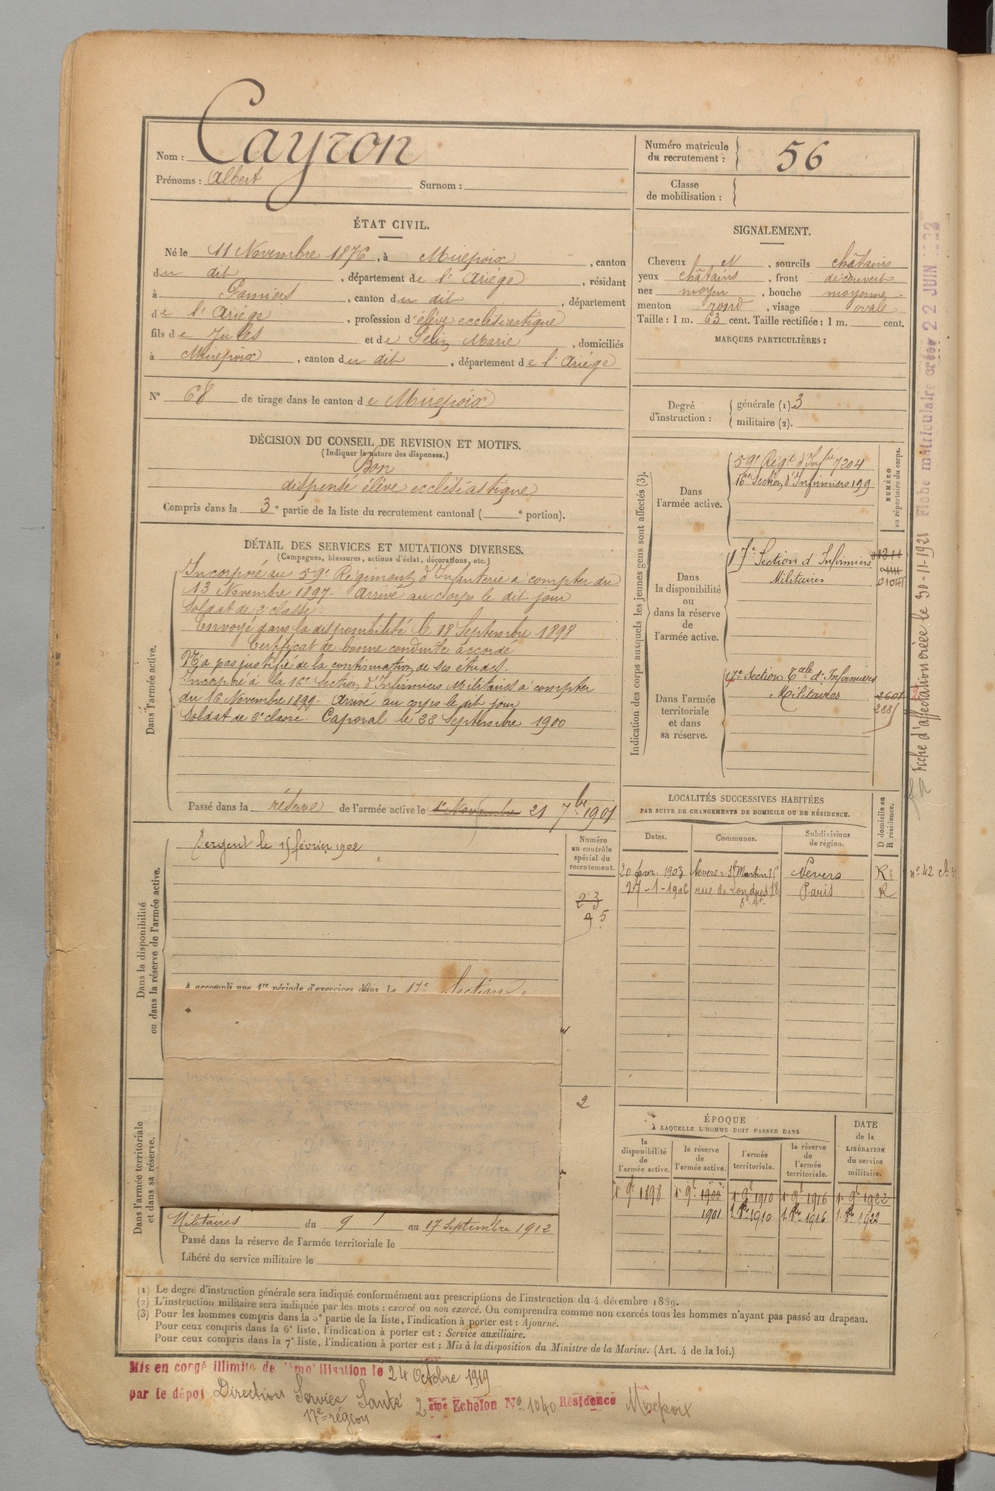 Nom : Cayron
Prénoms : Albert Surnom :
Numéro matricule du recrutement : 56
Classe de mobilisation :
ÉTAT CIVIL.
Né le 11 Novembre 1876, à Mirepoix, canton
du dit, département de l'Ariége, résidant
à Pamiers, canton du dit, département
de l'Ariége, profession d'élève ecclésiastique
fils de Jules et de Pélix Marie, domiciliés
à Mirepoix, canton du dit, département de l'Ariége
N° 68 de tirage dans le canton de Mirepoix
SIGNALEMENT.
Cheveux N, sourcils châtains
yeux châtains, front découvert
nez moyen, bouche moyenne
menton rond, visage ovale
Taille : 1 m. 63 cent. Taille rectifiée : 1 m. cent.
MARQUES PARTICULIÈRES :
Degré d'instruction : générale (1) 3
militaire (2).
DÉCISION DU CONSEIL DE REVISION ET MOTIFS.
(Indiquer la nature des dispenses.)
Bon
dispensé élève ecclésiastique
Compris dans la 3e partie de la liste du recrutement cantonal ( e portion).
DÉTAIL DES SERVICES ET MUTATIONS DIVERSES.
(Campagnes, blessures, actions d'éclat, décorations, etc.)
Dans l'armée active.
Incorporé au 59e Régiment d'Infanterie à compter du
13 Novembre 1897. Arrivé au corps le dit jour
Soldat de 2e classe.
Envoyé dans la disponibilité le 18 Septembre 1898
Certificat de bonne conduite accordé
N'a pas justifié de la continuation de ses études.
Incorporé à la 16e Section d'Infirmiers Militaires à compter
du 16 Novembre 1899. Arrivé au corps le dit jour
Soldat de 2e classe. Caporal le 23 Septembre 1900
Passé dans la réserve de l'armée active le 1er Novembre 21 7bre 1901
Dans la disponibilité ou dans la réserve de l'armée active.
Sergent le 15 février 1902
A accompli une 1re période d'exercices dans la 17e Section
Numéro au contrôle spécial du recrutement.
23
45
2
Dans l'armée territoriale et dans sa réserve.
Militaires du 9 au 17 Septembre 1912
Passé dans la réserve de l'armée territoriale le
Libéré du service militaire le
Indication des corps auxquels les jeunes gens sont affectés (3).
NUMÉRO au répertoire du corps.
Dans l'armée active.
59e Régt d'Infie 7204
16e Section d'Infirmiers 199
Dans la disponibilité ou dans la réserve de l'armée active.
17e Section d'Infirmiers
Militaires
Dans l'armée territoriale et dans sa réserve.
17e Section Eale d'Infirmiers
Militaires
LOCALITÉS SUCCESSIVES HABITÉES
PAR SUITE DE CHANGEMENTS DE DOMICILE OU DE RÉSIDENCE.
Dates. Communes. Subdivisions de région. D domicile ou R résidence.
20 févr. 1903 Nevers St Martin 15 Nevers R
27-1-1906 rue de Londres 18 Paris R
ÉPOQUE
A LAQUELLE L'HOMME DOIT PASSER DANS
DATE de la LIBÉRATION du service militaire.
la disponibilité de l'armée active. la réserve de l'armée active. l'armée territoriale. la réserve de l'armée territoriale.
1er 9bre 1898 1er 9bre 1900 1er 9bre 1910 1er 9bre 1916 1er 9bre 1922
1901 1910 1916 1922
(1) Le degré d'instruction générale sera indiqué conformément aux prescriptions de l'instruction du 4 décembre 1889.
(2) L'instruction militaire sera indiquée par les mots : exercé ou non exercé. On comprendra comme non exercés tous les hommes n'ayant pas passé au drapeau.
(3) Pour les hommes compris dans la 5e partie de la liste, l'indication à porter est : Ajourné.
Pour ceux compris dans la 6e liste, l'indication à porter est : Service auxiliaire.
Pour ceux compris dans la 7e liste, l'indication à porter est : Mis à la disposition du Ministre de la Marine. (Art. 4 de la loi.)
Mis en congé illimité de démobilisation le 24 Octobre 1919
par le dépôt Direction Service Santé 2ème Echelon No 1040 Résidence Mirepoix
17e région
Fiche d'affectation créée le 30-11-1921 Fiche matriculaire créée 22 JUIN